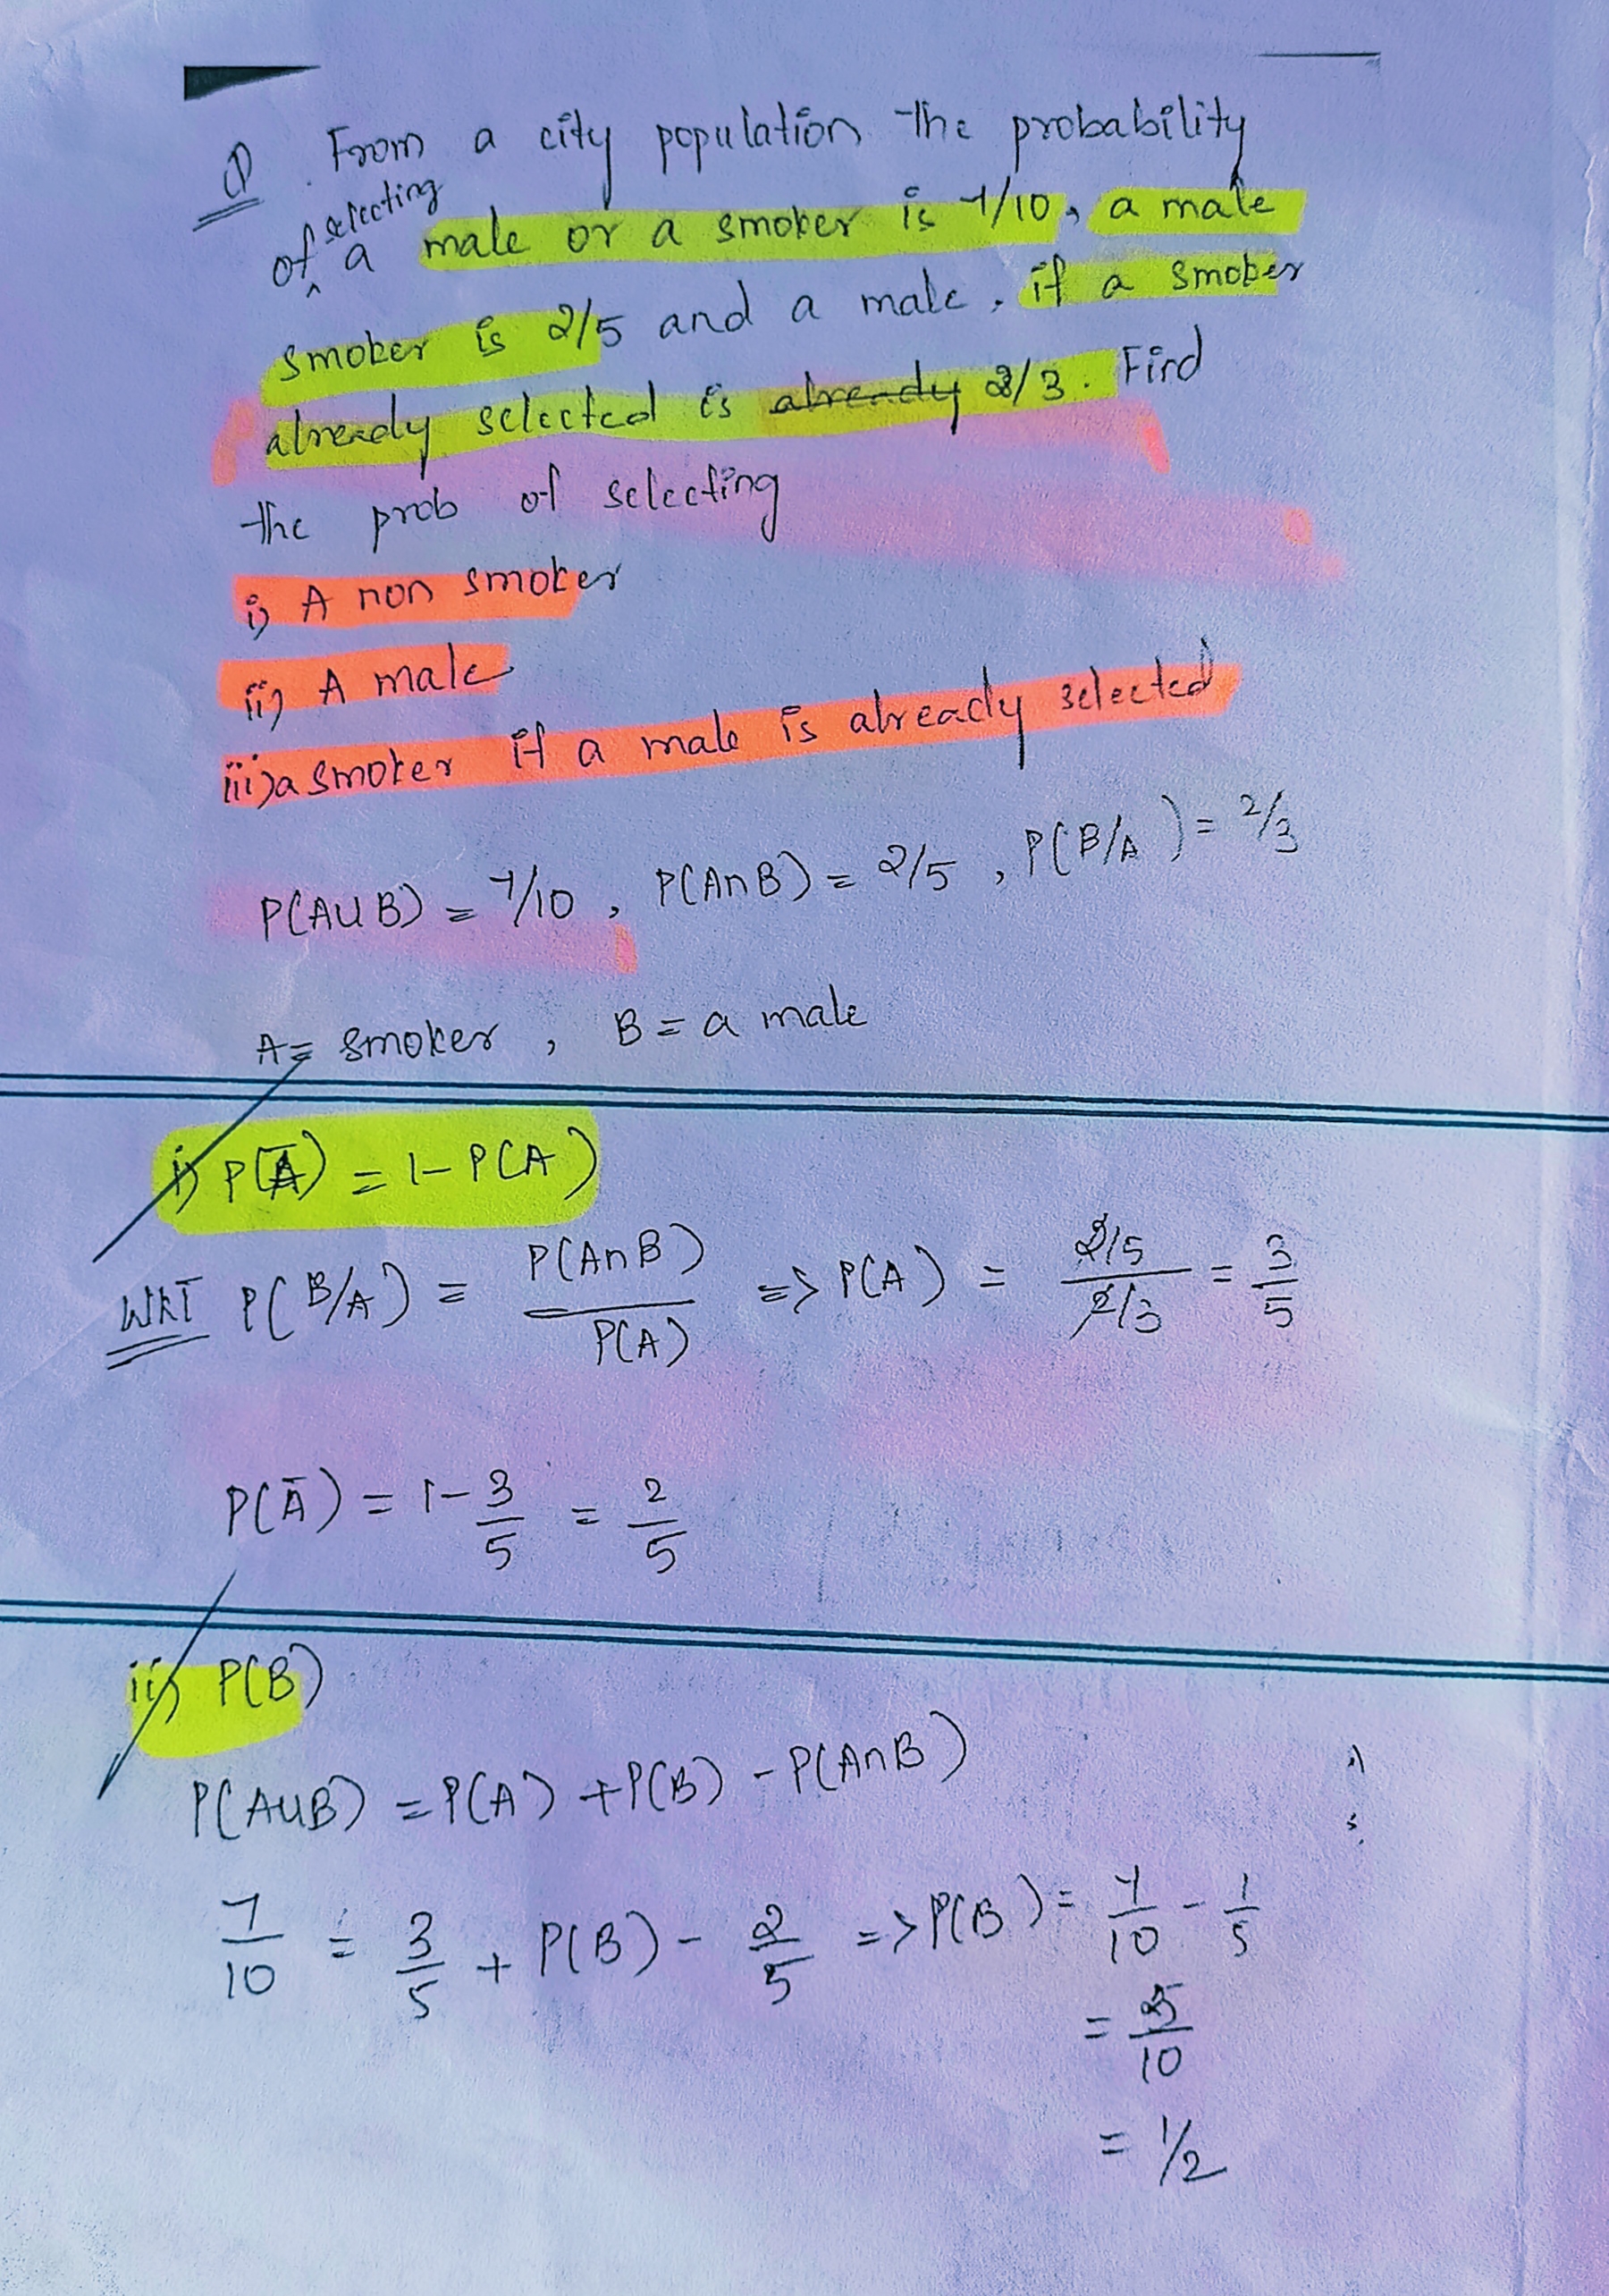 Q. From a city population the probability
of selecting a male or a smoker is 7/10, a male
smoker is 2/5 and a male, if a smoker
already selected is already 2/3. Find
the prob of selecting
i) A non smoker
ii) A male
iii) a smoker if a male is already selected
P(A∪B) = 7/10, P(A∩B) = 2/5, P(B/A) = 2/3
A = smoker, B = a male
i) P(Ā) = 1 - P(A)
WKT P(B/A) = P(A∩B) / P(A) => P(A) = (2/5) / (2/3) = 3/5
P(Ā) = 1 - 3/5 = 2/5
ii) P(B)
P(A∪B) = P(A) + P(B) - P(A∩B)
7/10 = 3/5 + P(B) - 2/5 => P(B) = 7/10 - 1/5
= 5/10
= 1/2